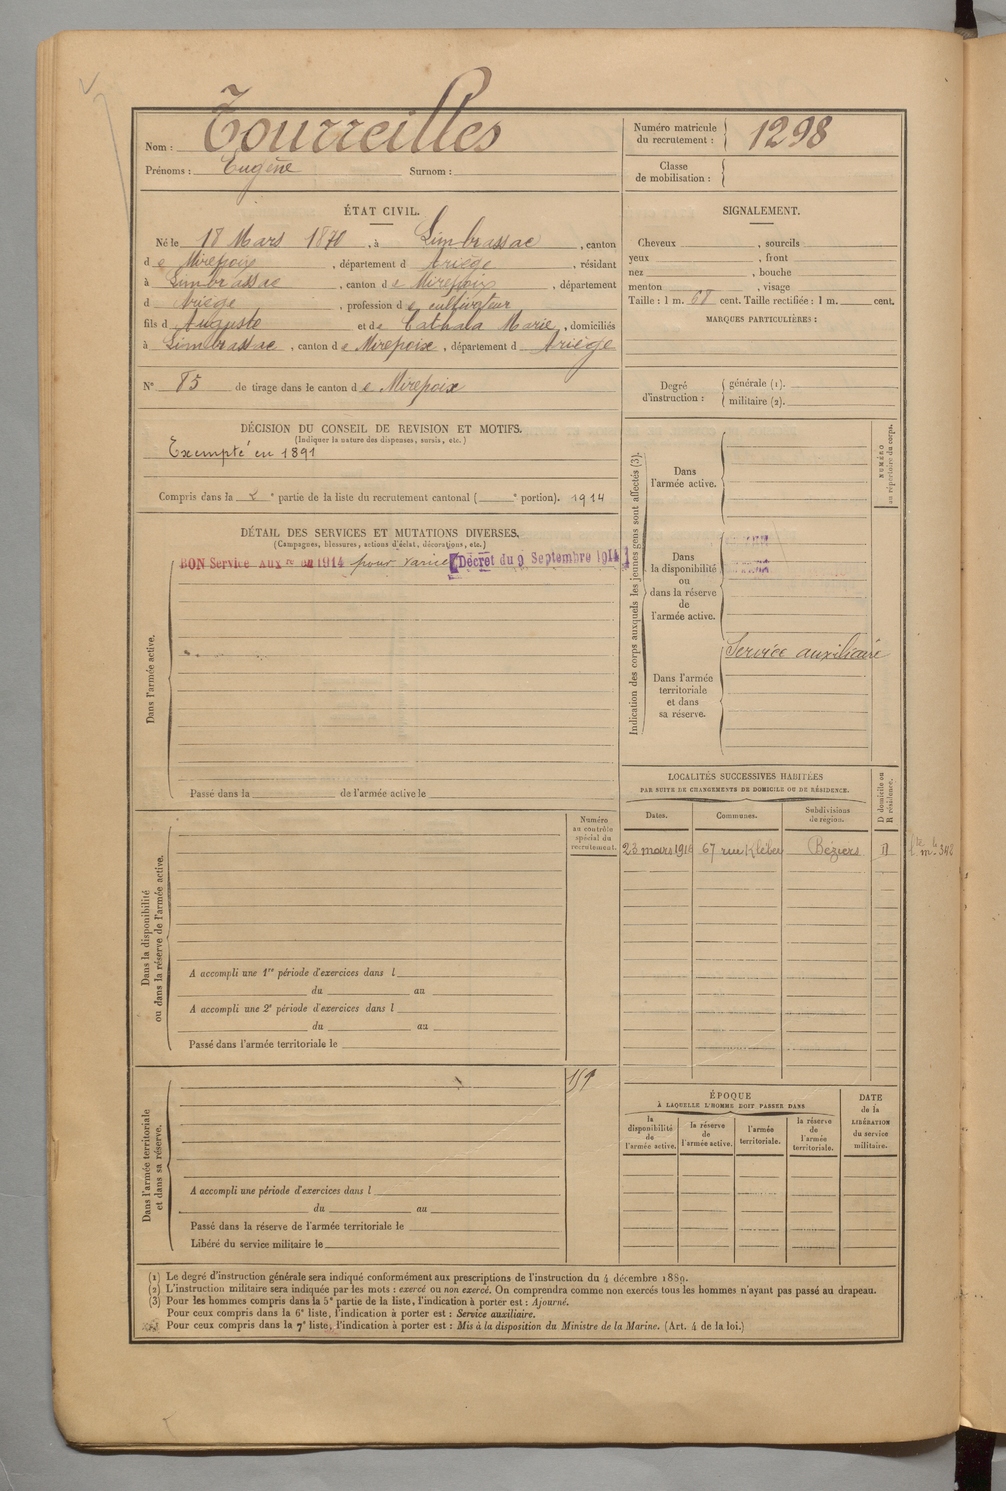 Nom : Tourreilles
Prénoms : Eugène Surnom :
Numéro matricule du recrutement : 1298
Classe de mobilisation :
ÉTAT CIVIL.
Né le 18 Mars 1870, à Limbrassac, canton
de Mirepoix, département d Ariège, résidant
à Limbrassac, canton de Mirepoix, département
d Ariège, profession de cultivateur
fils d Auguste et de Cathala Marie, domiciliés
à Limbrassac, canton de Mirepoix, département d Ariège
N° 85 de tirage dans le canton de Mirepoix
SIGNALEMENT.
Cheveux , sourcils
yeux , front
nez , bouche
menton , visage
Taille : 1 m. 68 cent. Taille rectifiée : 1 m. cent.
MARQUES PARTICULIÈRES :
Degré d'instruction :
générale (1).
militaire (2).
DÉCISION DU CONSEIL DE REVISION ET MOTIFS.
(Indiquer la nature des dispenses, sursis, etc.)
Exempté en 1891
Compris dans la 2e partie de la liste du recrutement cantonal ( e portion). 1914
DÉTAIL DES SERVICES ET MUTATIONS DIVERSES.
(Campagnes, blessures, actions d'éclat, décorations, etc.)
BON Service Auxre en 1914 pour Décret du 9 Septembre 1914
Dans l'armée active.
Passé dans la de l'armée active le
Indication des corps auxquels les jeunes gens sont affectés (3).
NUMÉRO au répertoire du corps.
Dans l'armée active.
Dans la disponibilité ou dans la réserve de l'armée active.
Service auxiliaire
Dans l'armée territoriale et dans sa réserve.
LOCALITÉS SUCCESSIVES HABITÉES
PAR SUITE DE CHANGEMENTS DE DOMICILE OU DE RÉSIDENCE.
Dates. Communes. Subdivisions de région. D domicile ou R résidence.
23 mars 1916 67 rue Kléber Béziers
Dans la disponibilité ou dans la réserve de l'armée active.
Numéro au contrôle spécial du recrutement.
A accompli une 1re période d'exercices dans l
du au
A accompli une 2e période d'exercices dans l
du au
Passé dans l'armée territoriale le
Dans l'armée territoriale et dans sa réserve.
A accompli une période d'exercices dans l
du au
Passé dans la réserve de l'armée territoriale le
Libéré du service militaire le
ÉPOQUE
À LAQUELLE L'HOMME DOIT PASSER DANS
la disponibilité de l'armée active.
la réserve de l'armée active.
l'armée territoriale.
la réserve de l'armée territoriale.
DATE de la LIBÉRATION du service militaire.
(1) Le degré d'instruction générale sera indiqué conformément aux prescriptions de l'instruction du 4 décembre 1889.
(2) L'instruction militaire sera indiquée par les mots : exercé ou non exercé. On comprendra comme non exercés tous les hommes n'ayant pas passé au drapeau.
(3) Pour les hommes compris dans la 5e partie de la liste, l'indication à porter est : Ajourné.
Pour ceux compris dans la 6e liste, l'indication à porter est : Service auxiliaire.
Pour ceux compris dans la 7e liste, l'indication à porter est : Mis à la disposition du Ministre de la Marine. (Art. 4 de la loi.)